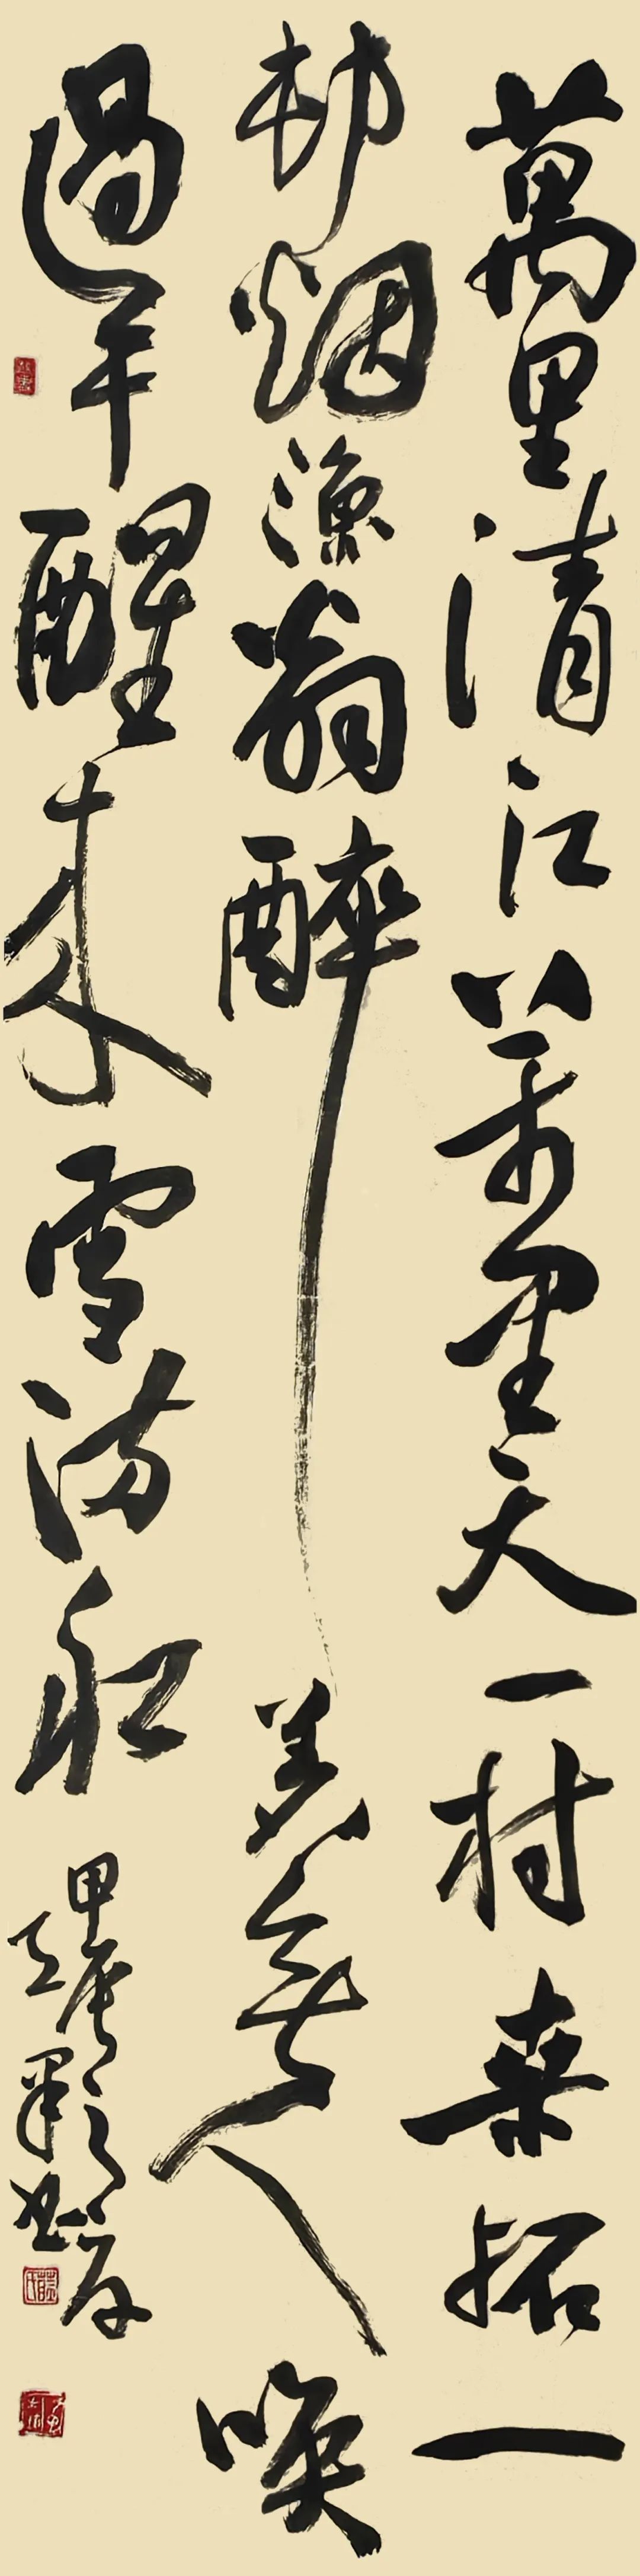 萬里清江萬里天一村桑柘一
村烟漁翁醉著無人喚
過午醒來雪滿船
甲辰之
書